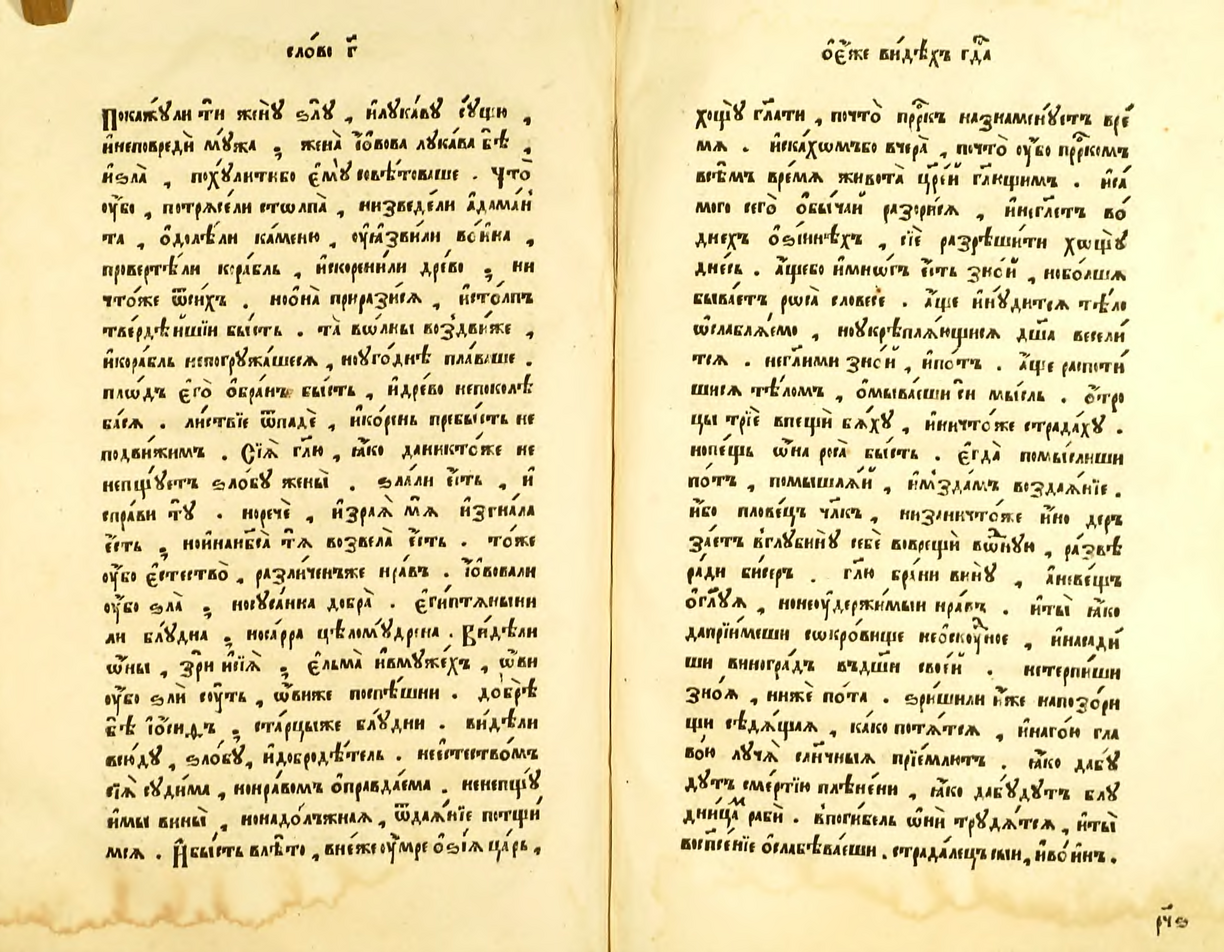 сло́во г҃
Покажу́ли ти жену̀ ѕлꙋ̀ , и҆лꙋка́вꙋ сꙋ́щꙋ ,
и҆неповредѝ мꙋ́жа ; жена̀ і҆о́вова лꙋка́ва бѣ̀ ,
и҆ѕла̀ , похꙋ́литибо є҆мꙋ̀ совѣ́товаше . Что̀
ᲂу҆́бо , потрѧсе́ли стѡлпа̀ , низведе́ли а҆дама́н
та , ѡ҆долѣ́ли ка́меню , ᲂу҆ꙗ҆зви́ли во́ина ,
провертѣ́ли кора́бль , и҆скорени́ли дре́во ; ни
что́же ѿси́хъ . но ѻ҆на̀ прирази́сѧ , и҆сто́лпъ
тверде́йшїи бы́сть . та̀ вѡлны̀ воздви́же ,
и҆кора́бль непогрꙋжа́шесѧ , ноᲂуго́днѣ пла́ваше .
пло́дъ є҆гѡ̀ ѻ҆бра́нъ бы́сть , и҆дре́во непоколѣ
ба́сѧ . ли́ствїе ѿпадѐ , и҆ко́рень пребы́сть не
подви́жимъ . Сїѧ̀ гл҃ю , ꙗ҆́ко даникто́же не
непщꙋ́етъ ѕло́бꙋ жены̀ . ѕла́ли є҆́сть , и҆
спра́ви тꙋ̀ . норечѐ , и҆зраѧ̀ мѧ̀ и҆згна́ла
є҆́сть ; нои҆нанб҃са̀ тѧ̀ возвела̀ є҆́сть . то́же
ᲂу҆́бо є҆стество̀ , разли́ченъже нра́въ . і҆о́вовали
ᲂу҆́бо ѕла̀ ; носꙋса́нна добра̀ . є҆ги́птѧныни
ли блꙋ́дна ; носа́рра цѣломꙋ́дрена . Ви́дѣли
ѡ҆́ны , зрѝ и҆сїѧ̀ ; є҆льма̀ и҆вмꙋже́хъ , ѡ҆́ви
ᲂу҆́бо ѕлѝ сꙋ́ть , ѡ҆́виже поспѣ́шни . до́брѣ
бѣ̀ і҆о́сифъ ; ста́рцыже блꙋ́дни . ви́дѣли
всю́дꙋ , ѕло́бꙋ , и҆добродѣ́тель . неесте́ство́мъ
сїѧ̀ сꙋди́ма , нонра́вомъ ѻ҆правда́ема . ненепщꙋ́
и҆мы̀ вины̀ , нонадо́лжнаѧ , ѿдаѧ́нїе потщи́
мсѧ . И҆бы́сть влѣ́то , внеже ᲂу҆́мре ѻ҆зі́ѧ ца́рь ,
ѻ҆є҆́же ви́дѣхъ гдⷭ҇а
хощꙋ̀ гл҃ати , почто̀ прⷪ҇ркъ назнаменꙋ́етъ вре́
мѧ . и҆скахо́мъбо вчера̀ , почто̀ ᲂу҆́бо прⷪ҇ркомъ
всѣ́мъ вре́мѧ живота̀ цр҃е́й гл҃ющимъ . и҆са́
мого сего̀ ѻ҆бы́чаи разо́рисѧ , и҆негл҃етъ во́
днехъ ѻ҆зі́инѣхъ , сїѐ разрѣши́ти хощꙋ̀
дне́сь . а҆́щебо и҆мно́гъ є҆́сть зно́й , ноболшѧ
быва́етъ роса̀ словесѐ . а҆́ще и҆нꙋ́дитсѧ тѣ́ло
ѡ҆слаблѧ́емо , ноᲂукрѣплѧ́ющисѧ дш҃а̀ весели́
тсѧ . негл҃и́ми зно́й , и҆по́тъ . а҆́ще распоти́
шисѧ тѣ́ломъ , ѻ҆мыва́еши сѝ мы́сль . ѻ҆́тро
цы трїѐ впещѝ бѧ́хꙋ , и҆ничто́же страда́хꙋ .
нопе́щь ѡ҆на̀ роса̀ бы́сть . є҆гда̀ помы́слиши
по́тъ , помышлѧ́й , и҆мзда́мъ воздаѧ́нїе .
и҆́бо плове́цъ чл҃къ , низаничто́же и҆́но дер
за́етъ вглꙋбинꙋ̀ себѐ воврещѝ во́днꙋю , ра́звѣ
ра́ди би́серъ . гл҃ю бра́ни винꙋ̀ , а҆неве́щь
ѻ҆глꙋ́ѧ , нонеᲂудержи́мыи нра́въ . и҆ты̀ ꙗ҆́ко
даприи́меши сокро́вище неѻскꙋ́дное , и҆насади́
ши виногра́дъ въдш҃ѝ свое́й . нетерпи́ши
зно́ѧ , нижѐ по́та . ѕри́шили и҆́же напозо́ри
щи сѣдѧ́щаѧ , ка́ко потѧ́тсѧ , и҆наго́ю гла
во́ю лꙋчѧ̀ слⷩ҇ичныѧ прїе́млютъ . ꙗ҆́ко дабꙋ́
дꙋтъ сме́ртїю плѣ́нени , ꙗ҆́ко дабꙋ́дꙋтъ блꙋ
дни́цамъ рабѝ . впоги́бель ѡ҆нѝ трꙋдѧ́тсѧ , и҆ты̀
воспⷭ҇нїе ѻ҆слабѣва́еши . страда́лецъ сыи , и҆во́инъ .
рч҃ѕ